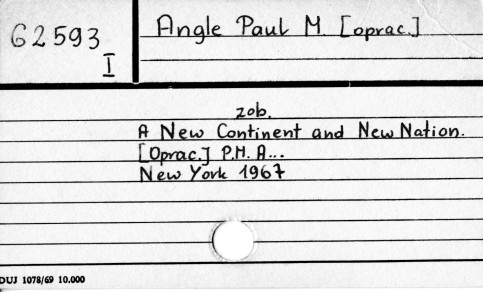 G2593
I
Angle Paul M. [oprac.]
zob.
A New Continent and New Nation.
[Oprac.] P.M. A...
New York 1967
DUJ 1078/69 10.000